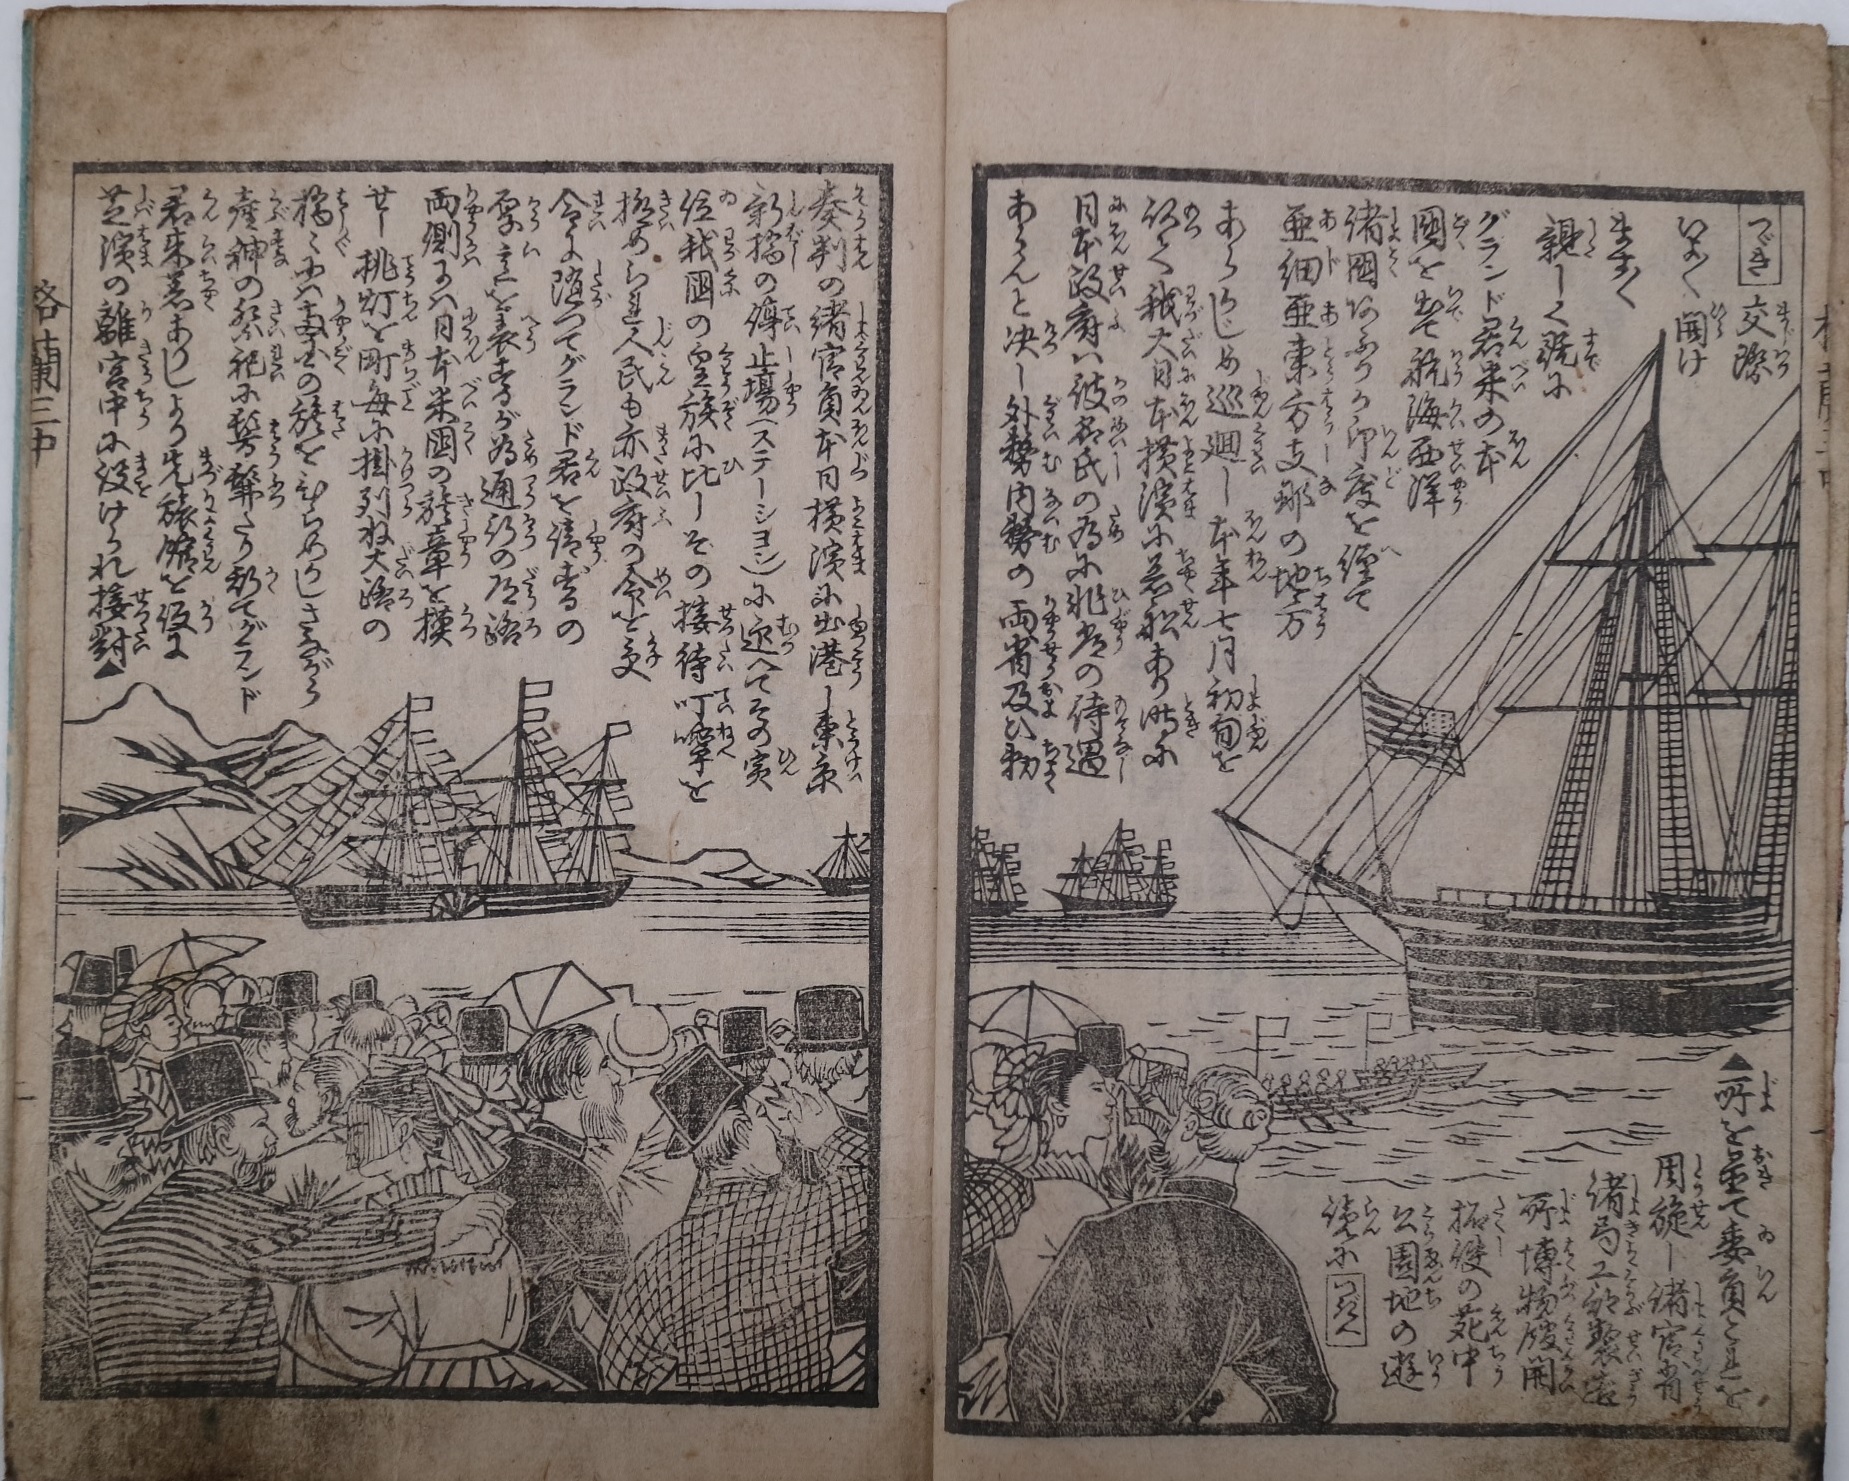 つぎ
交際
いよ〳〵開け
ますます
親しく既に
グランド君米の本
國を出て航海西洋
諸國およひ印度を經て
亜細亜東方支那の地方
あらかじめ巡廻し本年七月初旬を
以て我大日本横濱に着船あり時に
日本政府は彼君氏の為に非常の待遇
あらんと決し外務内務の両省及び勅
奏判の諸官員本日横濱に出港し東京
新橋の停止場(ステーシヨン)に迎へてその實
位我國の皇族に比しその接待叮嚀を
極めらる人民も亦政府の令を受
令に随つてグランド君を請ずるの
厚意を表するが為通行の道路
両側には日本米國の旗章を模
せし挑灯を町毎に掛列ね大路の
橋々には両国の旗をひらめかしさながら
産神の祭礼に髣髴たり却てグランド
君来着ありしより先旅館を仮に
芝濱の離宮中に設けられ接對▲
▲所を置て委員これを
周旋し諸官省
諸局工部製造
所博物館開
拓使の苑中
公園地の遊
讌に
格蘭三中